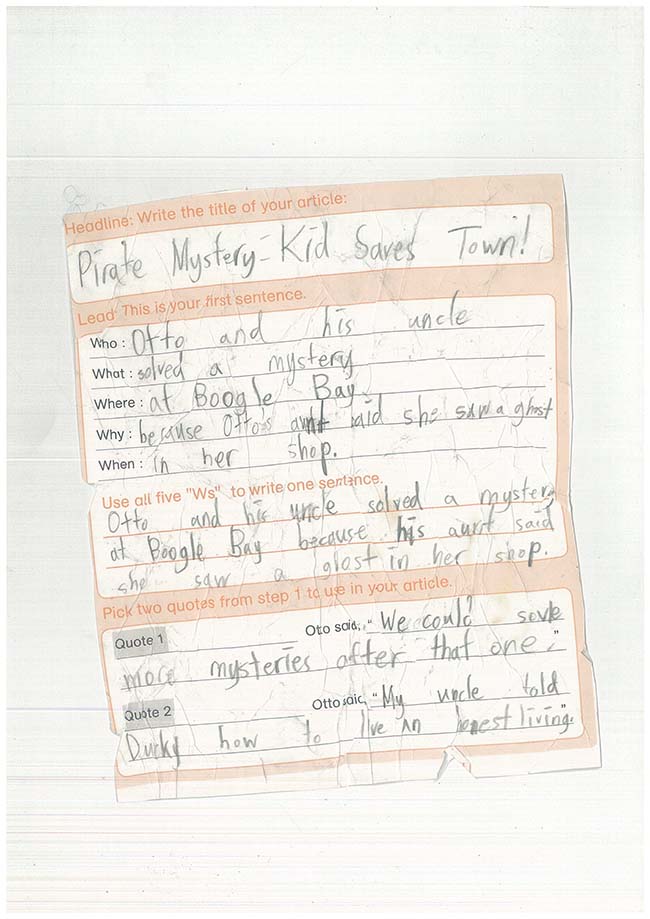 Headline: Write the title of your article:
Pirate Mystery- Kid Saves Town!
Lead: This is your first sentence.
Who : Otto and his uncle
What : solved a mystery
Where : at Boogle Bay
Why : because Otto's aunt said she saw a ghost
When : in her shop.
Use all five "Ws" to write one sentence.
Otto and his uncle solved a mystery
at Boogle Bay because his aunt said
she saw a ghost in her shop.
Pick two quotes from step 1 to use in your article.
Quote 1 Otto said, "We could solve
more mysteries after that one."
Quote 2 Otto said, "My uncle told
Durky how to live an honest living."